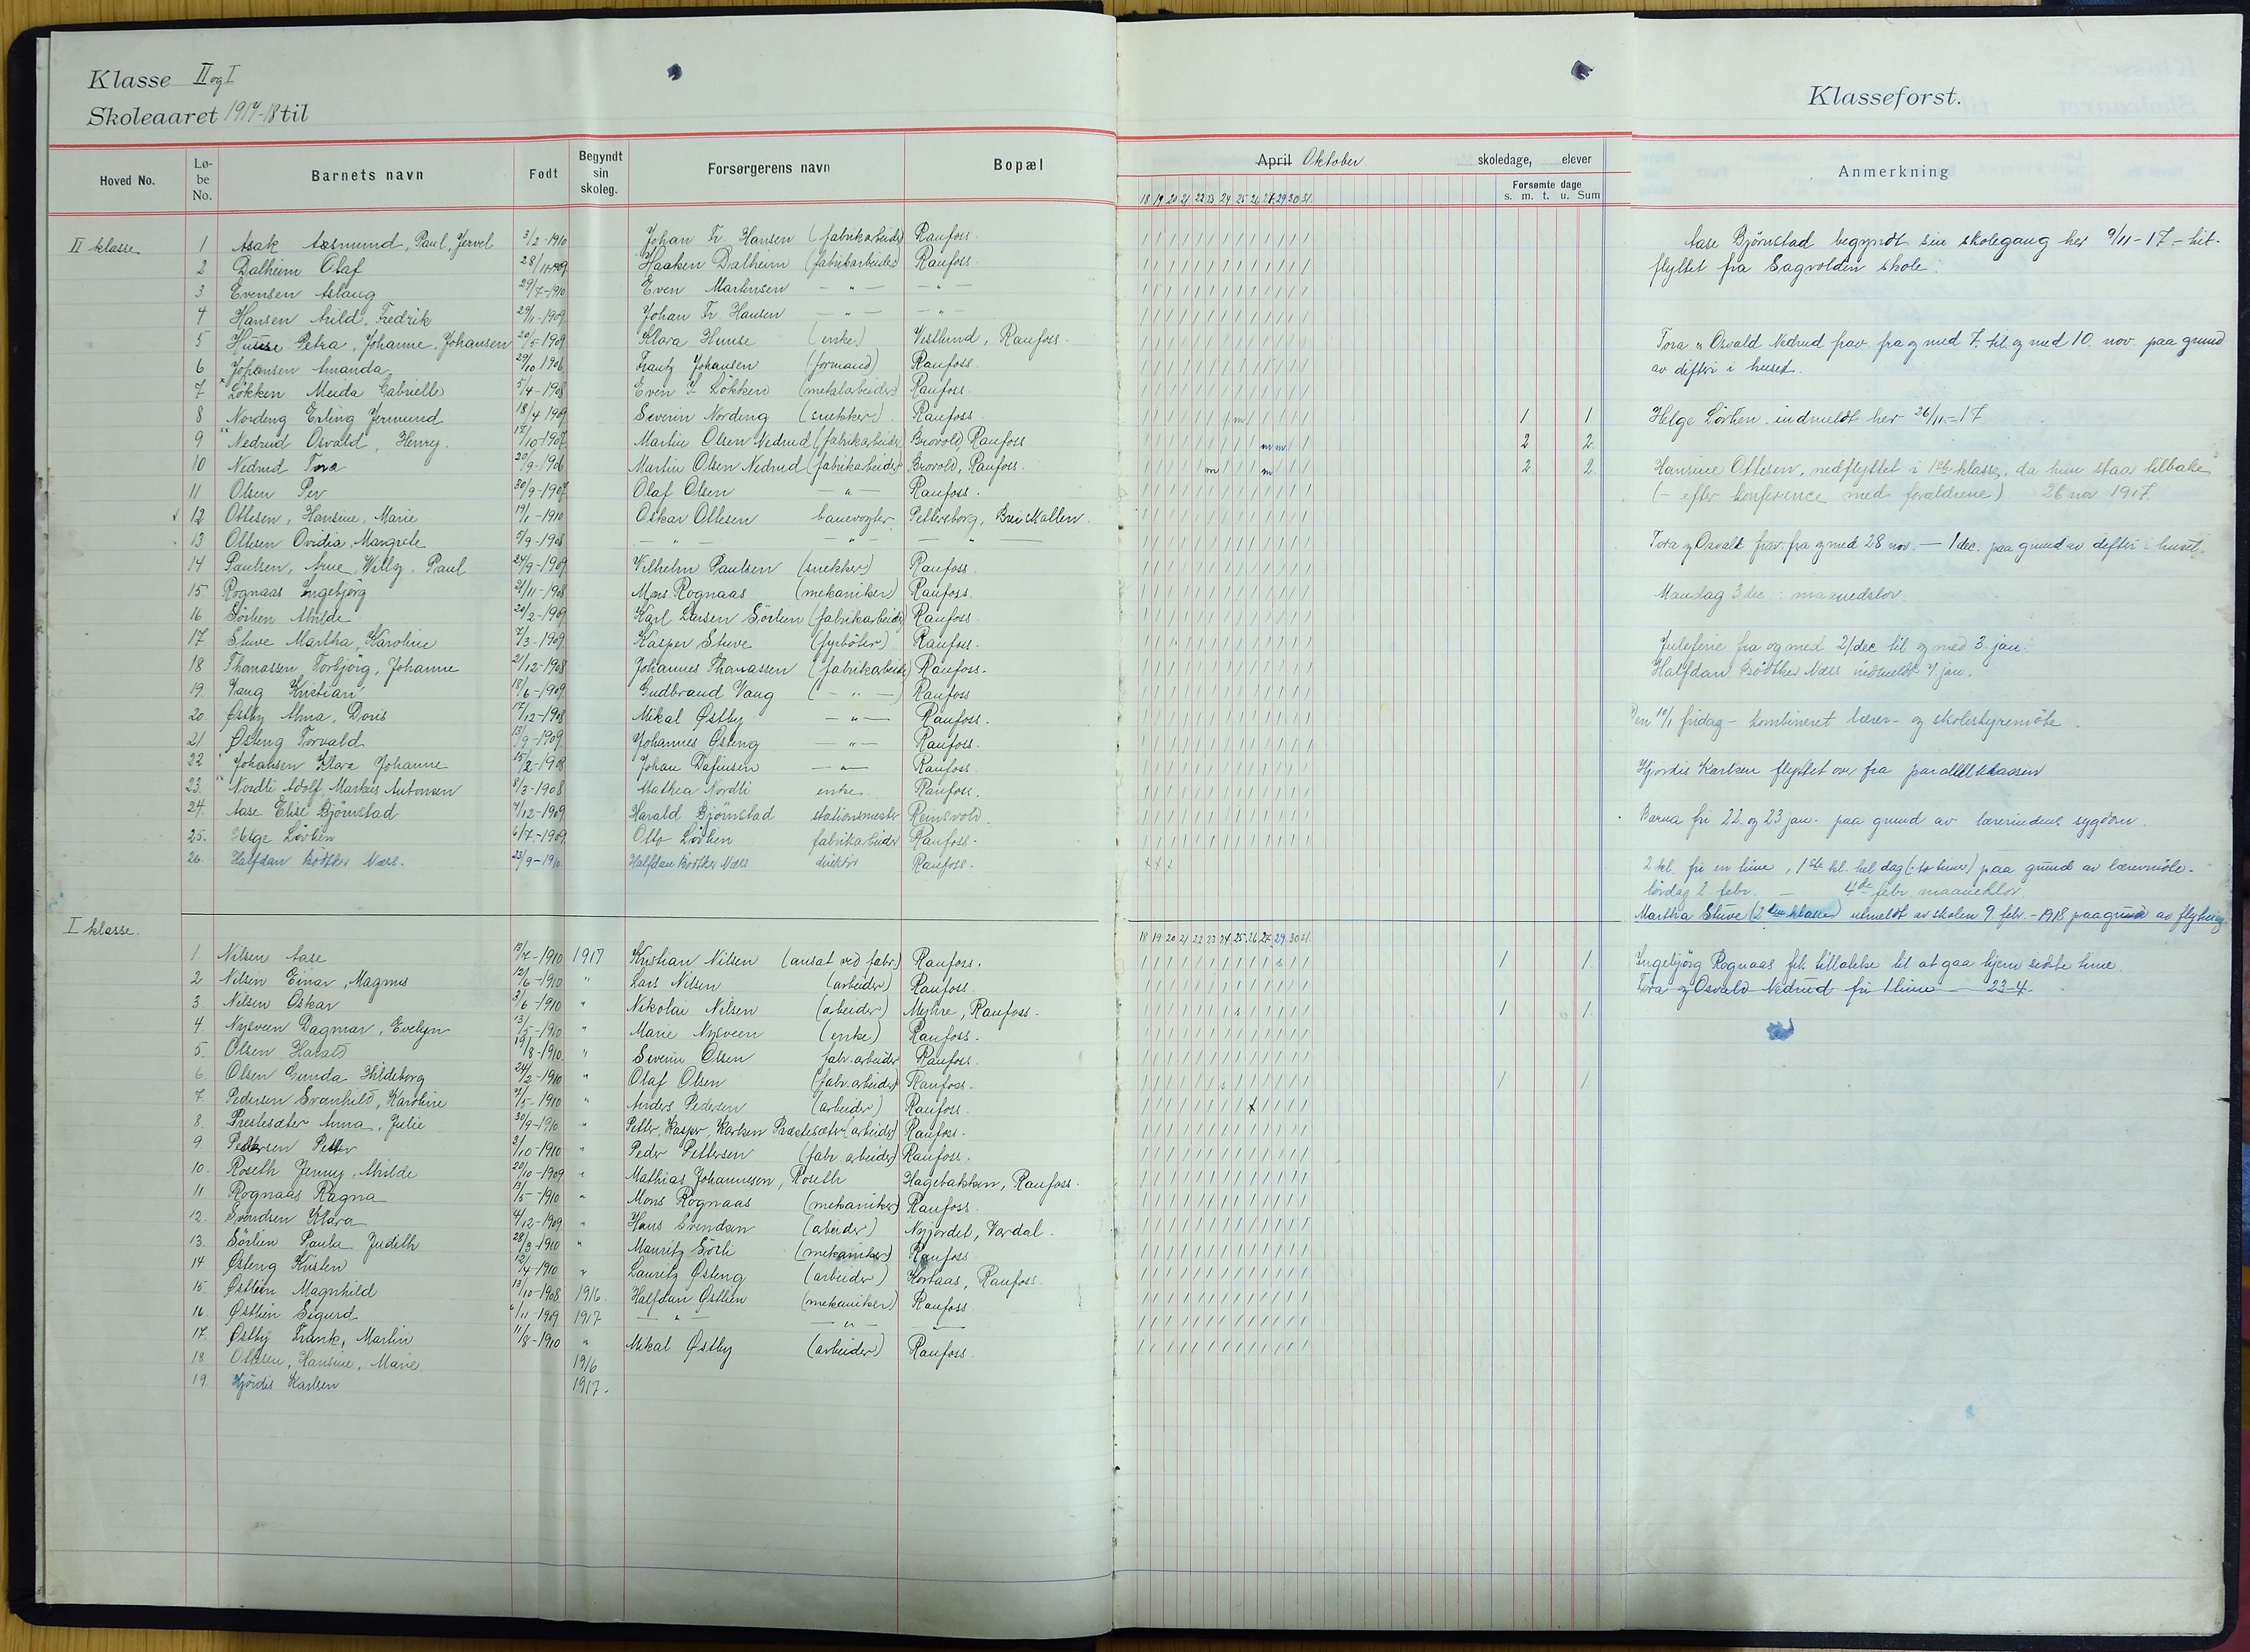 Klasse II og I
Skoleaaret 1917-18 til
Hoved No. Løbe No. Barnets navn Født Begyndt sin skoleg. Forsørgerens navn Bopæl
II klasse
1 Asak Aasmund, Paul, Jervel 3/2-1910 Johan Fr. Hansen (fabrikarbeider) Raufoss.
2 Dalheim Olaf 28/11-1909 Haaken Dalheim (fabrikarbeider) Raufoss.
3 Evensen Aslaug 29/7-1910 Even Martinsen — " — — " —
4 Hansen Arild, Fredrik 29/11-1909 Johan Fr. Hansen — " — — " —
5 Huuse Petra, Johanne, Johansen 20/5-1909 Klara Huuse (enke) Vestlund, Raufoss.
6 Johansen Amanda 29/10 1906 Frantz Johansen (formand) Raufoss.
7 Løkken Meida Gabrielle 5/4-1908 Even Løkken (metalarbeider) Raufoss.
8 Nordeng Erling Jermund 18/4 1909 Severin Nordeng (snekker) Raufoss.
9 Nedrud Osvald, Henry. 17/10-1907 Martin Olsen Nedrud (fabrikarbeider) Brovold, Raufoss
10 Nedrud Tora 20/9-1906 Martin Olsen Nedrud (fabrikarbeider) Brovold, Raufoss.
11 Olsen Per 30/9-1907 Olaf Olsen — " — Raufoss.
12 Ottesen, Hansine, Marie 19/1-1910 Oskar Ottesen banevogter Pettersborg, Breiskallen.
13 Ottesen Ovidia, Margrete 5/9-1908 — " — — " — — " —
14 Paulsen, Arne, Willy, Paul 24/9-1909 Vilhelm Paulsen (snekker) Raufoss.
15 Rognaas Ingebjörg 21/11-1908 Mons Rognaas (mekaniker) Raufoss.
16 Sörlien Alvilde 20/2-1909 Karl Larsen Sörlien (fabrikarbeider) Raufoss.
17 Stuve Martha, Karoline 7/3-1909 Kasper Stuve (fyrböter) Raufoss.
18 Thomassen Torbjörg, Johanne 2/12-1908 Johannes Thomassen (fabrikarbeider) Raufoss.
19. Vang Kristian 18/6-1909 Gudbrand Vang (— " —) Raufoss
20. Østby Alma, Doris 17/12-1908 Mikal Østby — " — Raufoss.
21 Østeng Torvald 13/9-1909. Johannes Østeng — " — Raufoss.
22 Johansen Klara Johanne 15/2-1908 Johan Dafinsen — " — Raufoss
23. Nordli Adolf, Markus Antonsen 8/3-1908 Mathea Nordli enke. Raufoss.
24. Aase Elise Björnstad 4/12-1909 Harald Björnstad stationsmester Reinsvold
25. Helge Lövlien 6/7-1909 Otto Lövlien fabrikarbeider Raufoss.
26. Halfdan Bödtker Næss. 23/9-1910 Halfdan Bödtker Næss direktör Raufoss.
I klasse.
1. Nilsen Aase 13/7-1910 1917 Kristian Nilsen (ansat ved fabr.) Raufoss.
2 Nilsen Einar, Magnus 12/6-1910 " Lars Nilsen (arbeider) Raufoss.
3 Nilsen Oskar 3/6-1910 " Nikolai Nilsen (arbeider) Myhre, Raufoss.
4. Nysveen Dagmar, Evelyn 13/5-1910 " Marie Nysveen (enke) Raufoss.
5. Olsen Harald 19/8-1910 " Severin Olsen fabr. arbeider Raufoss.
6. Olsen Gunda Hildeborg 24/2-1910 " Olaf Olsen (fabr. arbeider) Raufoss.
7. Pedersen Svanhild, Karoline 7/5-1910 " Anders Pedersen (arbeider) Raufoss.
8. Prestesæter Anna, Julie 30/9-1910 " Petter, Kasper, Karlsen Prestesæter (arbeider) Raufoss.
9. Pettersen Petter 3/10-1910 " Peder Pettersen (fabr. arbeider) Raufoss.
10. Roseth Jenny, Alvilde 20/10-1909 " Mathias Johannesen, Roseth Hagebakken, Raufoss.
11 Rognaas Ragna 13/5-1910 " Mons Rognaas (mekaniker) Raufoss.
12. Svendsen Klara 4/12-1909 " Hans Svendsen (arbeider) Nyjordet, Vardal.
13. Sörlien Paula Judith 28/3-1910 " Mauritz Sörli (mekaniker) Raufoss
14 Østeng Kristen 12/4-1910 " Lauritz Østeng (arbeider) Korlaas, Raufoss.
15. Østlien Magnhild 13/10-1908 1916. Halfdan Østlien (mekaniker) Raufoss
16. Østlien Sigurd 6/11-1909 1917 — " — — " — — " —
17. Østby Frank, Martin 11/8-1910 " Mikal Østby (arbeider) Raufoss.
18. Ottesen, Hansine, Marie. 1916
19. Hjördis Karlsen 1917.
April Oktober. skoledage, elever
Forsømte dage
18 19 20 21 22 23 24 25 26 27 29 30 31. s. m. t. u. Sum
m 1 1
m m 2 2
m m 2 2
x x x
18 19 20 21 22 23 24 25 26 27 29 30 31
s 1 1
s 1 1
s 1 1
x
Klasseforst.
Anmerkning
Aase Björnstad begyndt sin skolegang her 9/11-17 – hitflyttet fra Sagvolden skole.
Tora og Osvald Nedrud frav. fra og med 7. til og med 10. nov. paa grund
av difteri i huset.
Helge Lövlien indmeldt her 26/11-17
Hansine Ottesen, nedflyttet i 1ste klasse, da hun staar tilbake
(– efter konference med forældrene) 26 nov. 1917.
Tora og Osvald frav. fra og med 28 nov. — 1 dec. paa grund av difteri i huset.
Mandag 3 dec : maanedslov.
Juleferie fra og med 21 dec til og med 3. jan.
Halfdan Bödtker Næss indmeldt 7. jan.
Den 10/1 fridag – kombineret lærer- og skolestyremöte.
Hjördis Karlsen flyttet over fra parallelklassen
Barna fri 22. og 23 jan. paa grund av lærerindens sygdom.
2 kl. fri en time, 1ste kl. hel dag (: to timer) paa grund av lærermöte.
lördag 2. febr. — 4de febr. maanedslov.
Martha Stuve (2den klasse) utmeldt av skolen 9. febr. -1918 paa grund av flytning
Ingebjörg Rognaas fik tillatelse til at gaa hjem sidste time.
Tora og Osvald Nedrud fri 1 time — 23-4.